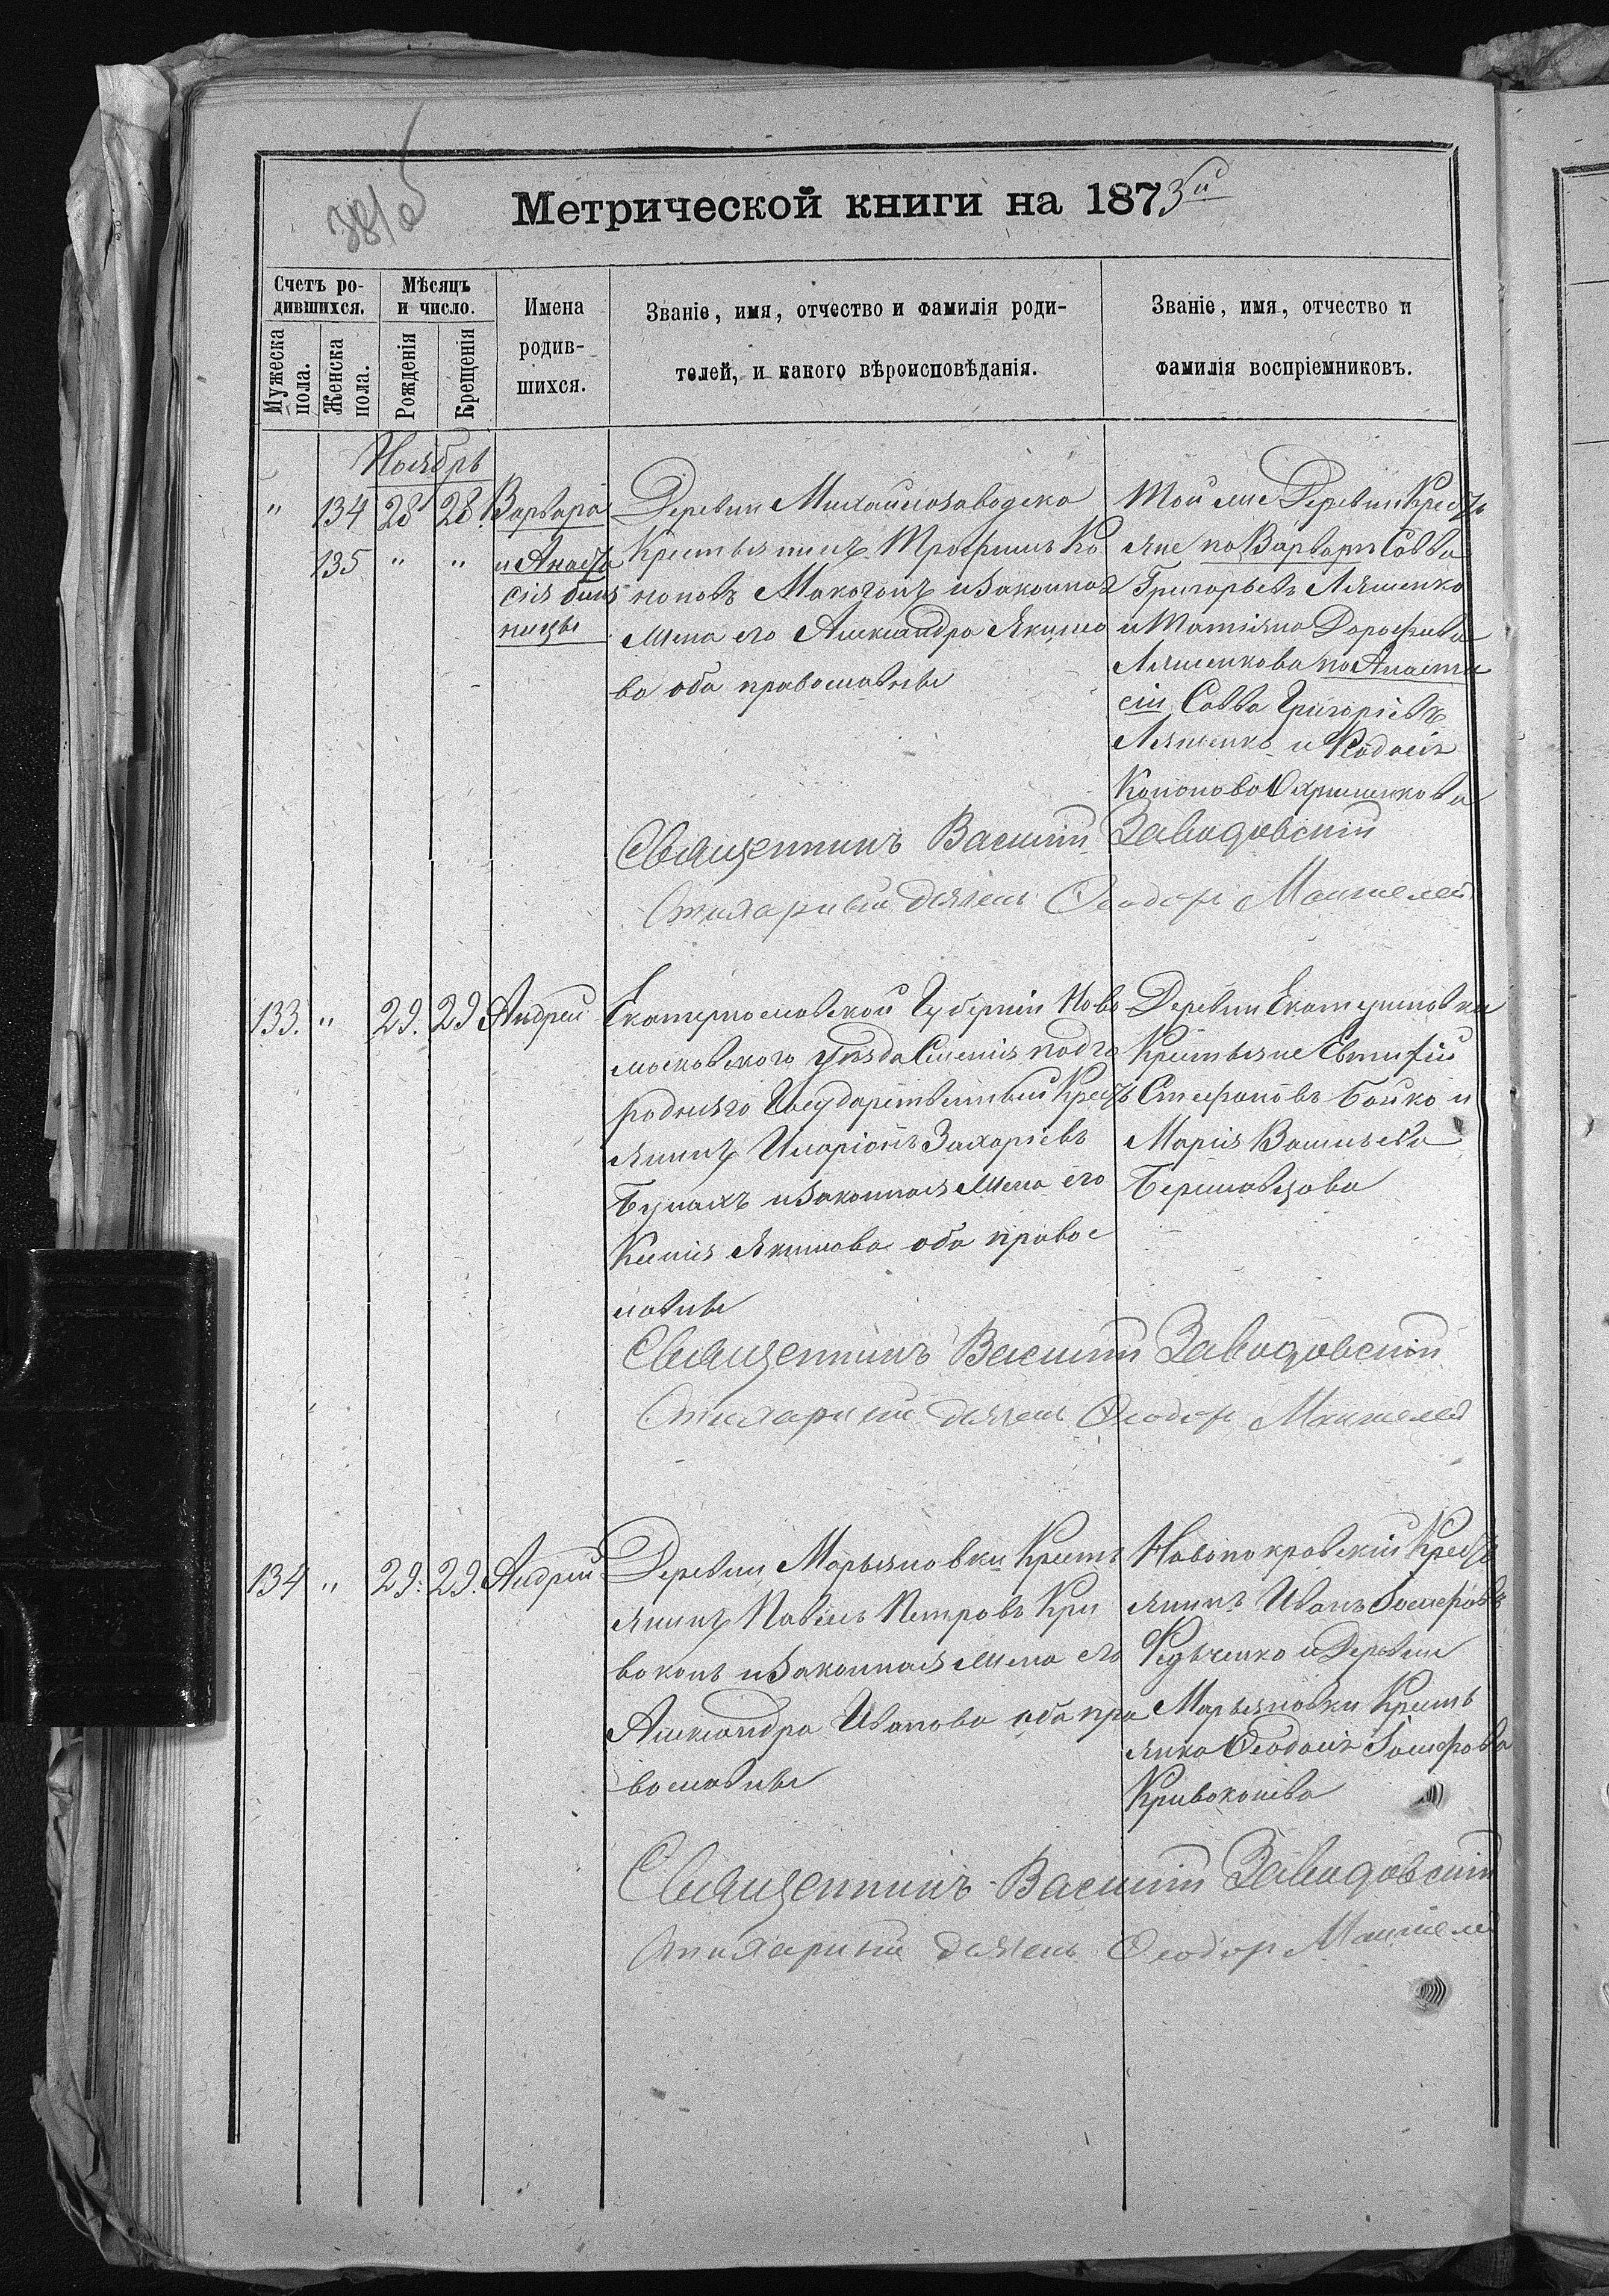 381 об
Метрической книги на 1873й
Счетъ ро-
дившихся.
Мужеска
пола.
Женска
пола.
Мѣсяцъ
и число.
Рожденія
Крещенія
Имена
родив-
шихся.
Званіе, имя, отчество и фамилія роди-
телей, и какого вѣроисповѣданія.
Званіе, имя, отчество и
фамилія воспріемниковъ.
Ноябрь
" 134 28 28. Варвара
135 " " и Анаста
сія близ
ницы
Деревни Михайлозаводско
Крестьянинъ Трофимъ Ко
ноновъ Макогонъ и законная
жена его Александра Якимо
ва оба православные
Той же Деревни Кресть
яне по Варварѣ Савва
Григорьевъ Ляшенко
и Татіяна Дорофѣева
Ляшенкова по Анаста
сіи Савва Григоріевъ
Ляшенко и Ѳеодосія
Кононова Охрименкова
Священникъ Василій Заводовскій
Стихарный дьячекъ Ѳеодоръ
133. " 29. 29 Андрей
Екатеринославской Губерніи Ново
московского уѣзда Селенія подго
родняго Государственный Кресть
янинъ Иларіонъ Захаріевъ
Булахъ и законная жена его
Ксенія Якимова оба правос
лавные
Деревни Екатериновки
Крестьяне Евтифій
Стефановъ Бойко и
Марія Васильева
Бериславцова
Священникъ Василій Заводовскій
Стихарный дьячекъ Ѳеодоръ
134 " 29. 29. Андрей
Деревни Марьяновки Кресть
янинъ Павелъ Петровъ Кри
вконь и законная жена его
Александра Иванова оба пра
вославные
Новопокровскій Кресть
янинъ Иванъ Іосифовъ
и Деревни
Марьяновки Кресть
янка Ѳеодосія Іосифова
Кривоконева
Священникъ Василій Заводовскій
Стихарный дьячекъ Ѳеодоръ